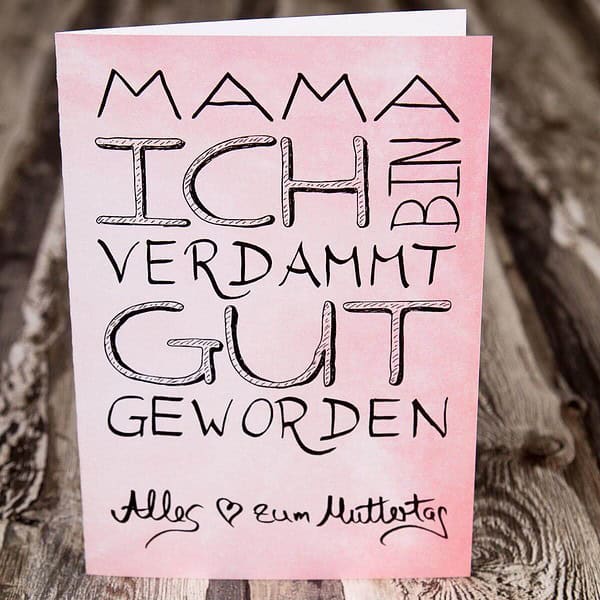 MAMA
ICH BIN
VERDAMMT
GUT
GEWORDEN
Alles ♡ zum Muttertag